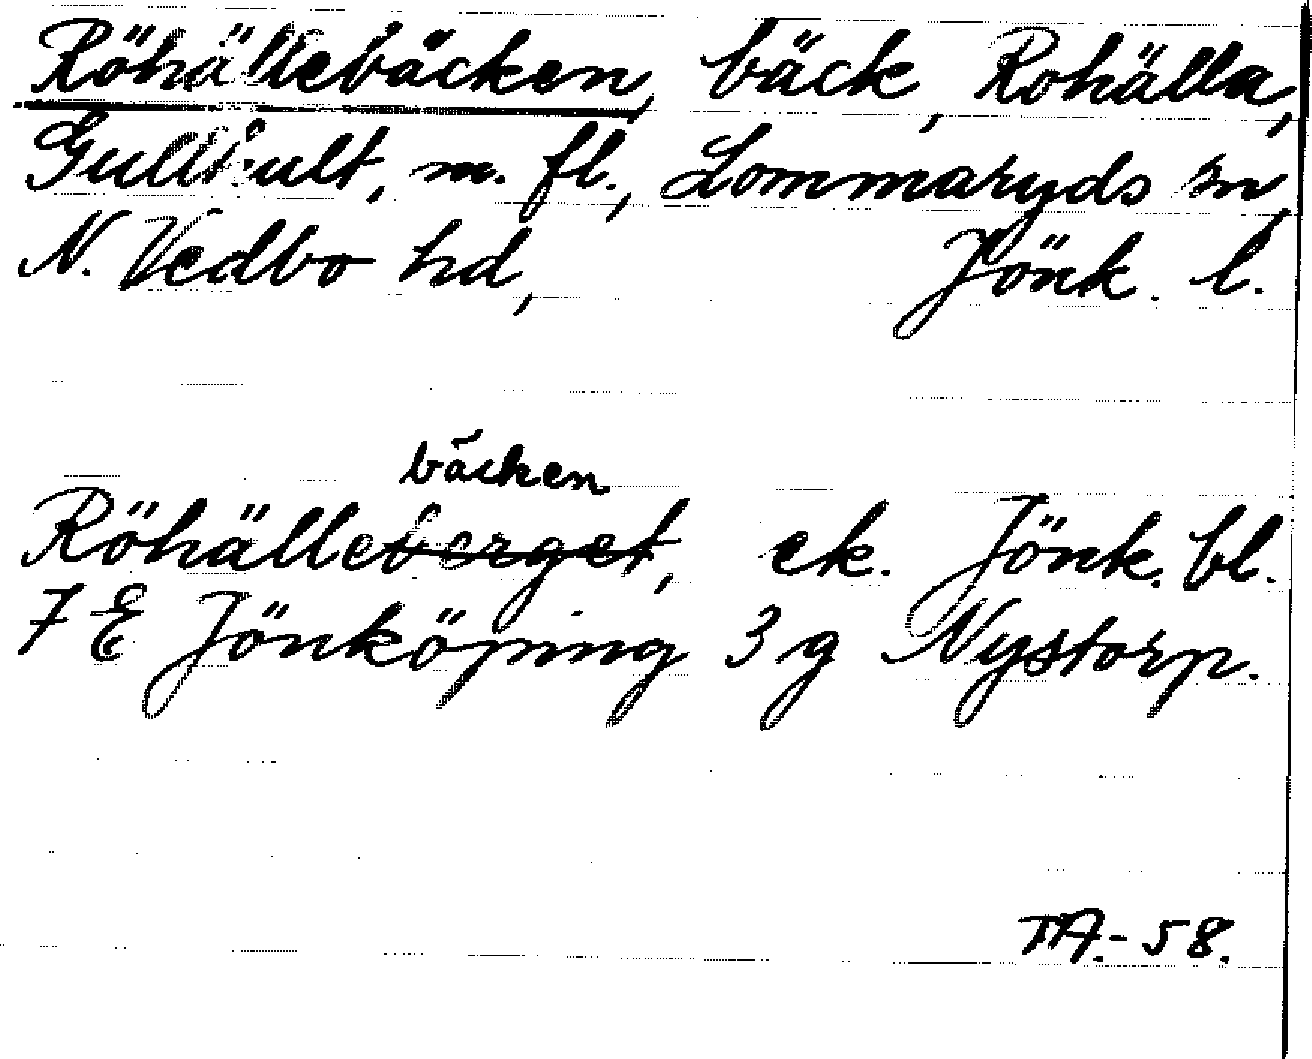 Röhällebäcken, bäck, Rohälla,
Gullhult, m. fl., Lommaryds sn,
N. Vedbo hd, Jönk. l.
bäcken
Röhälleberget, ek. Jönk. bl.
7 E Jönköping 3 g Nystorp.
TA.- 58.